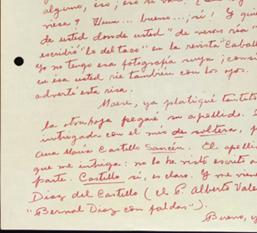 alguno, eso; eso se va
riesa? Uum... bueno... ¡sí! Y qui
de usted donde usted "de veras ría"
escribió "lo del taco" en la revista Caball
Yo no tengo esa fotografía suya; consi
en ésa usted ríe también con los ojos.
advertí esta risa.
Maese, ya platiqué tantito
la otra hoja pegaré su apellido. S
intrigado con el mis de soltera, p
Ana María Castillo Sancén. El apelli
que me intriga: no lo he visto escrito a
parte. Castillo sí, es claro. Y me vien
Díaz del Castillo (el P. Alberto Vale
"Bernal Díaz con faldas").
Bueno, y